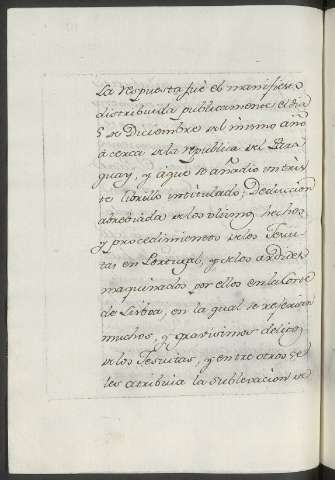 La respuesta fuè el manifiesto
distribuido publicamente el dia
5 de Diciembre del mismo año
acerca de la republica del Para
guay, y a que se añadio un tris
te librillo intitulado; Deduccion
abreviada de los ultimos hechos
y procedimientos de los Jesui
tas en Portugal, y de los ardides
maquinados por ellos en la Corte
de Lisboa, en la qual se referian
muchos, y gravisimos delitos
de los Jesuitas, y entre otros se
les atribuia la sublevacion de